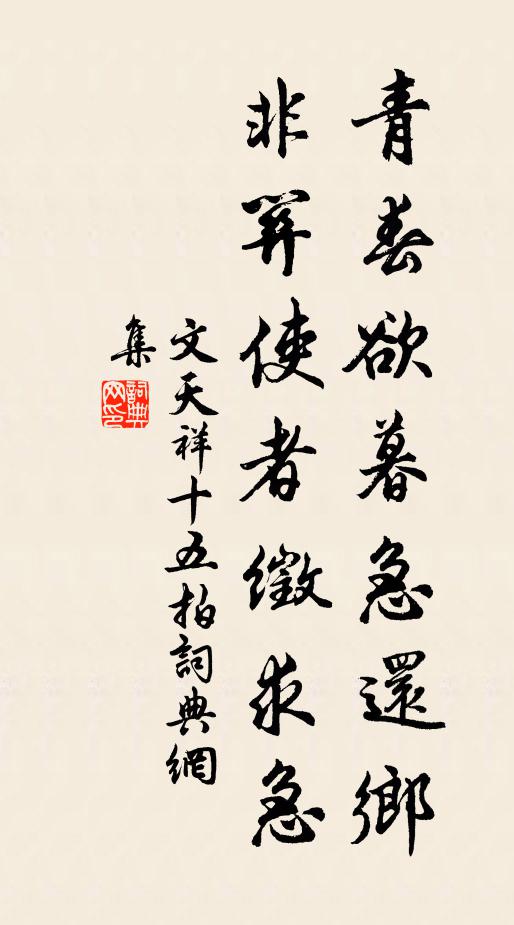 青春欲暮急還鄉
非關使者徵求急
文天祥十五拍詞典網
集
詞典網印